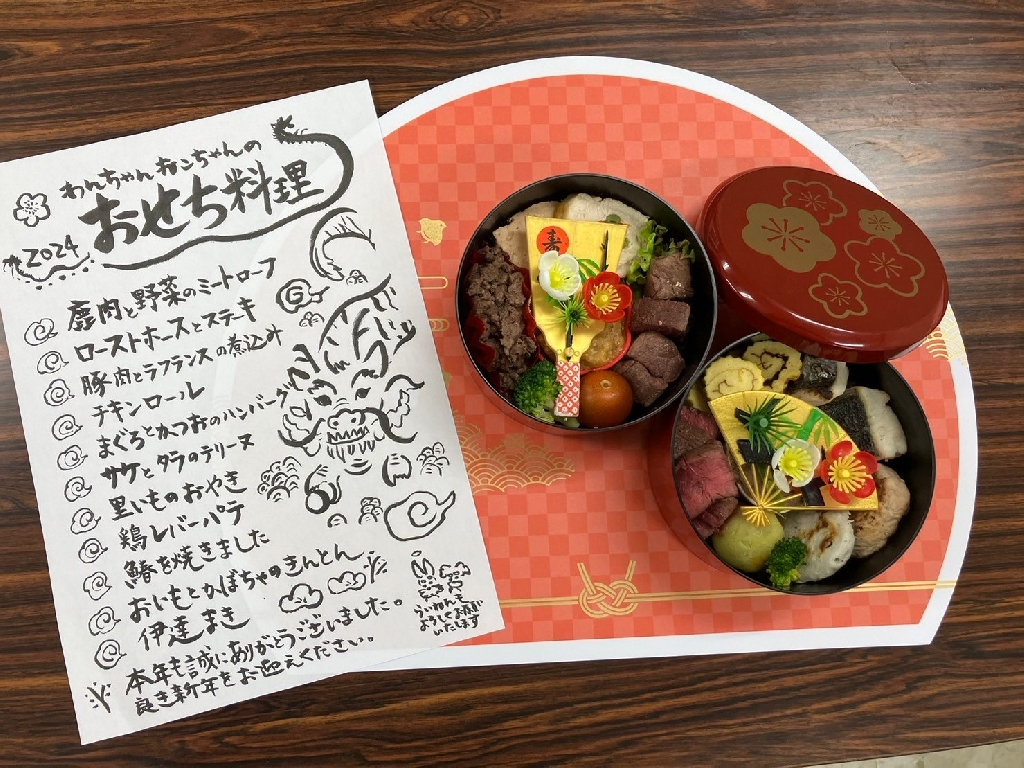 わんちゃんねこちゃんの
おせち料理
2024
鹿肉と野菜のミートローフ
ローストホースとステーキ
豚肉とラフランスの煮込み
チキンロール
まぐろとかつおのハンバーグ
サケとタラのテリーヌ
里いものおやき
鶏レバーパテ
鰆を焼きました
おいもとかぼちゃのきんとん
伊達まき
本年も誠にありがとうございました。
良き新年をお迎えください。
らいねんも
よろしくお願い
いたします
寿